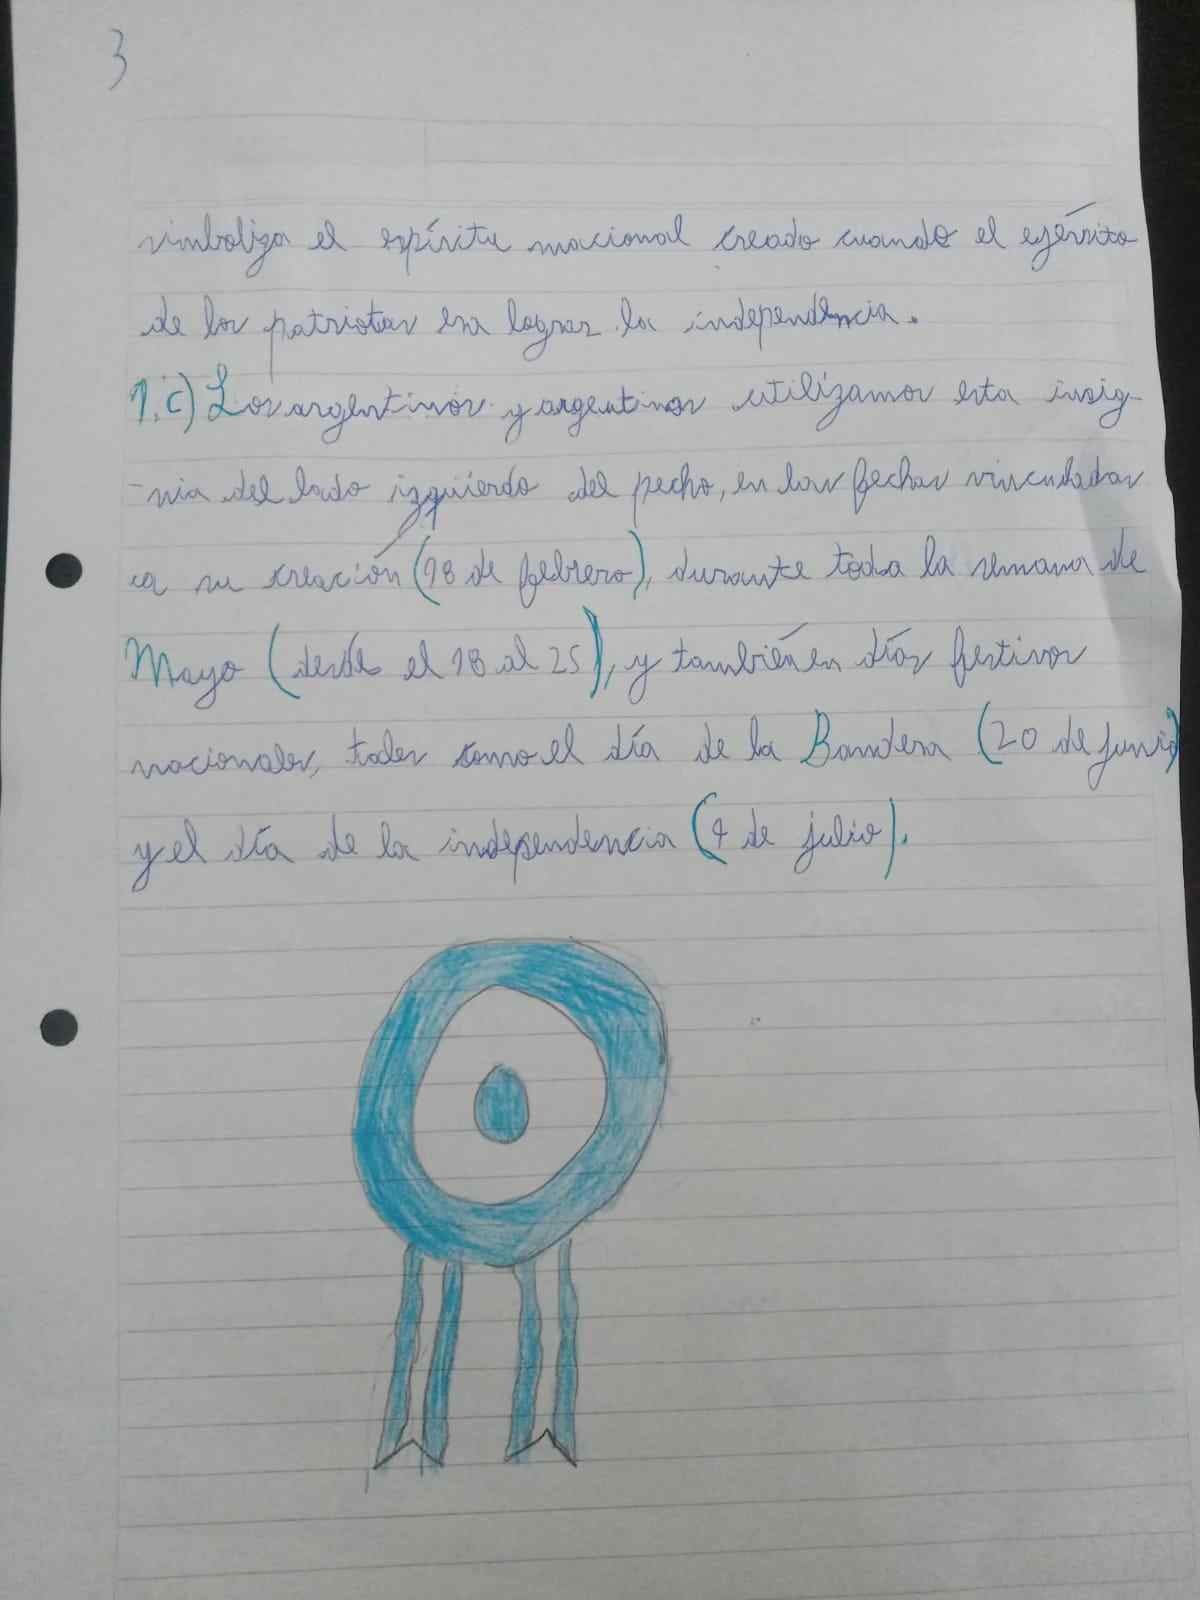 3
simboliza el espíritu nacional creado cuando el ejérsito
de los patriotas era lograr la independencia.
1.c) Los argentinos y argentinas utilizamos esta insig-
-nia del lado izquierdo del pecho, en las fechas vinculadas
a su creación (18 de febrero), durante toda la semana de
Mayo (desde el 18 al 25), y también en días festivos
nacionales, tales como el día de la Bandera (20 de junio)
y el día de la independencia (9 de julio).